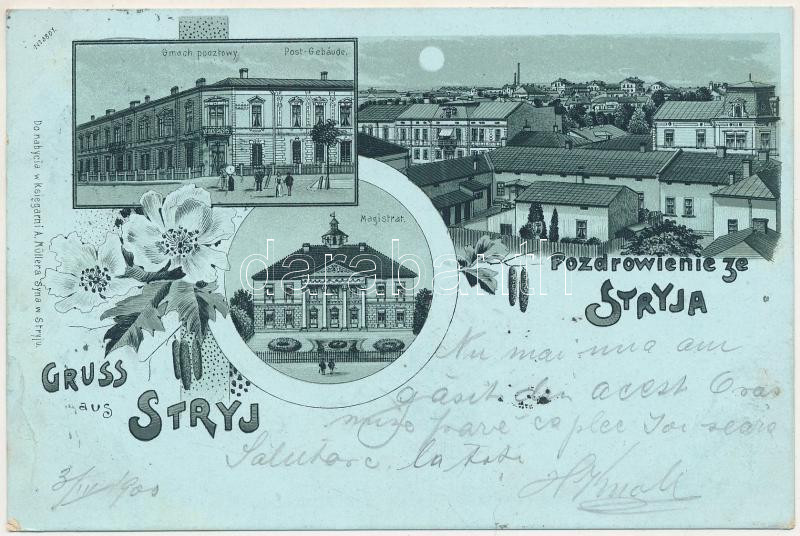 Nr 3801.
Gmach pocztowy. Post-Gebäude.
Magistrat.
Do nabycia w Księgarni A. Müllera Syna w Stryju.
Pozdrowienie ze
STRYJA
GRUSS
aus
STRYJ
darabanth
Nu mai una am
găsit din acest Oras
mise pare ca plec Joi seara
Salutare la toti
1900